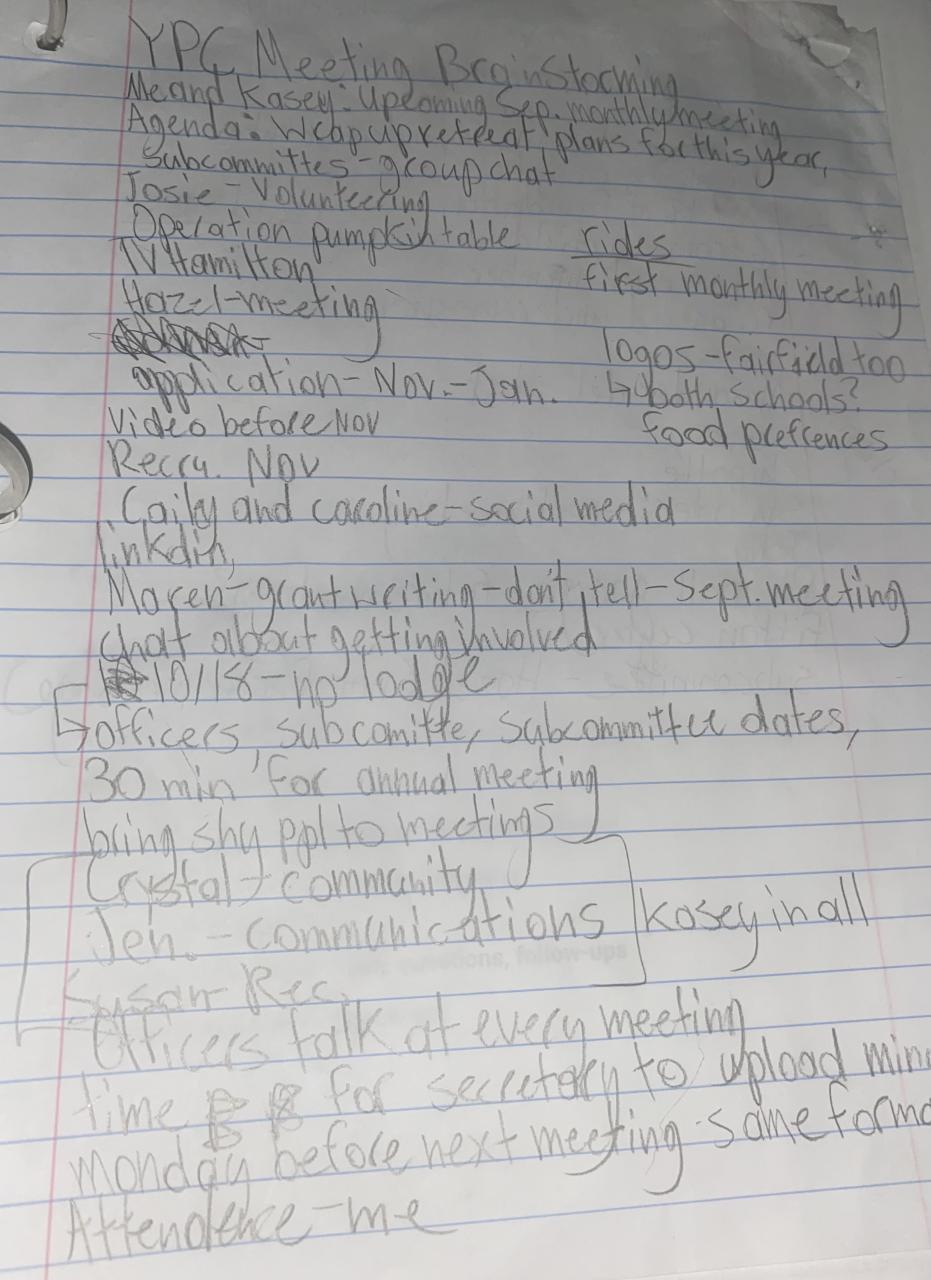 YPC Meeting Brainstorming
Me and Kasey: Upcoming Sep. monthly meeting
Agenda: Wrap up retreat, plans for this year,
subcommittes - group chat
Josie - Volunteering
Operation pumpkin table
rides
TV Hamilton
first monthly meeting
Hazel - meeting
logos - fairfield too
application - Nov. - Jan.
↳ both schools?
Video before Nov
food prefrences
Recru. Nov
Caily and caroline - social media
linkdin,
Maren - grant writing - don't tell - Sept. meeting
chat about getting involved
10/18 - no lodge
↳ officers, subcomitte, subcommittee dates,
30 min for annual meeting
bring shy ppl to meetings
Crystal - community
Jen. - communications
Kasey in all
Susan - Rec.
Officers talk at every meeting
time for secretary to upload min
monday before next meeting - same forma
Attendence - me